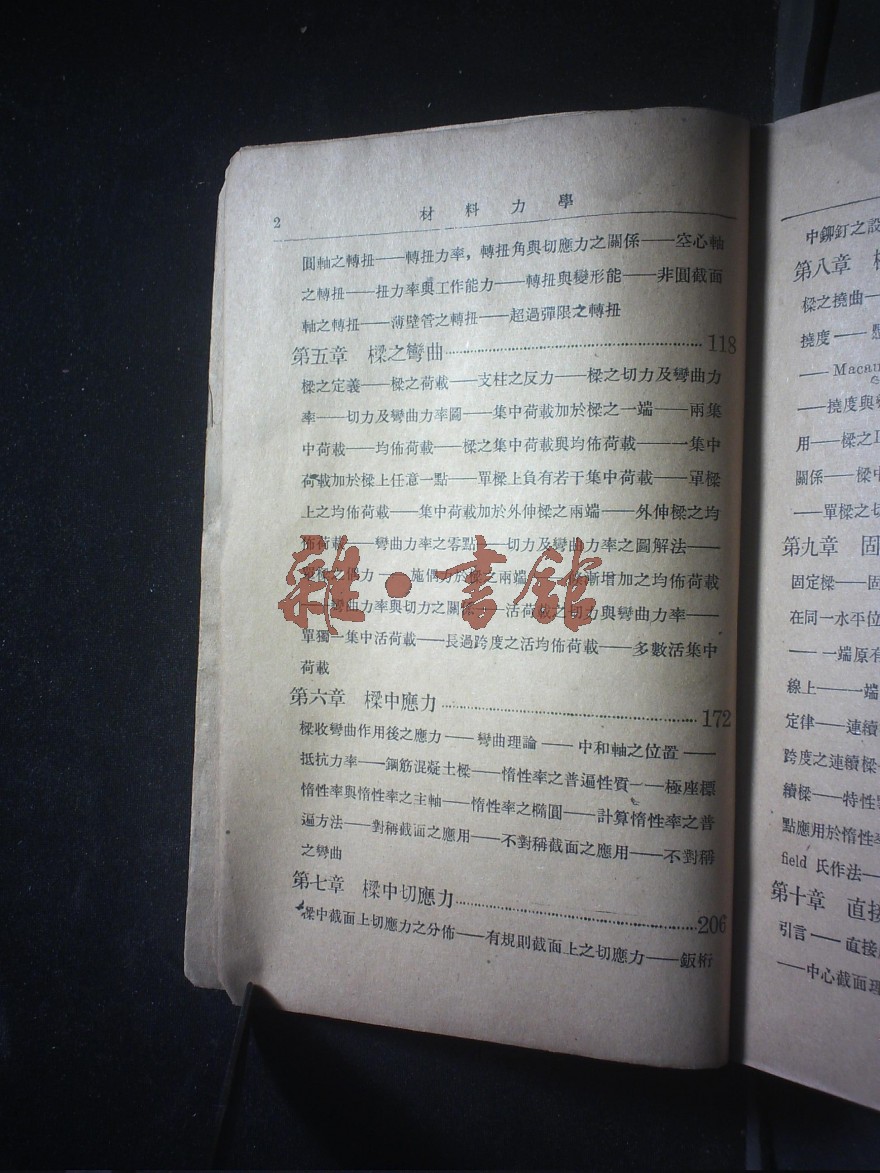 2 材料力學
圓軸之轉扭——轉扭力率，轉扭角與切應力之關係——空心軸
之轉扭——扭力率與工作能力——轉扭與變形能——非圓截面
軸之轉扭——薄壁管之轉扭——超過彈限之轉扭
第五章 樑之彎曲……118
樑之定義——樑之荷載——支柱之反力——樑之切力及彎曲力
率——切力及彎曲力率圖——集中荷載加於樑之一端——兩集
中荷載——均佈荷載——樑之集中荷載與均佈荷載——一集中
荷載加於樑上任意一點——單樑上負有若干集中荷載——單樑
上之均佈荷載——集中荷載加於外伸樑之兩端——外伸樑之均
佈荷載——彎曲力率之零點——切力及彎曲力率之圖解法——
之偶力——施偶力於樑之兩端——漸增加之均佈荷載
——彎曲力率與切力之關係——活荷載之切力與彎曲力率——
單獨一集中活荷載——長過跨度之活均佈荷載——多數活集中
荷載
第六章 樑中應力……172
樑收彎曲作用後之應力——彎曲理論——中和軸之位置——
抵抗力率——鋼筋混凝土樑——惰性率之普遍性質——極座標
惰性率與惰性率之主軸——惰性率之橢圓——計算惰性率之普
遍方法——對稱截面之應用——不對稱截面之應用——不對稱
之彎曲
第七章 樑中切應力……206
樑中截面上切應力之分佈——有規則截面上之切應力——鈑桁
雜·書館
中鉚釘之設
第八章
樑之撓曲—
撓度——
—— Macau
——撓度與
用——樑之
關係——樑中
——單樑之切
第九章 固
固定樑——固
在同一水平位
——一端原有
線上——一端
定律——連續
跨度之連續樑
續樑——特性
點應用於惰性率
field 氏作法—
第十章 直接
引言——直接
——中心截面理